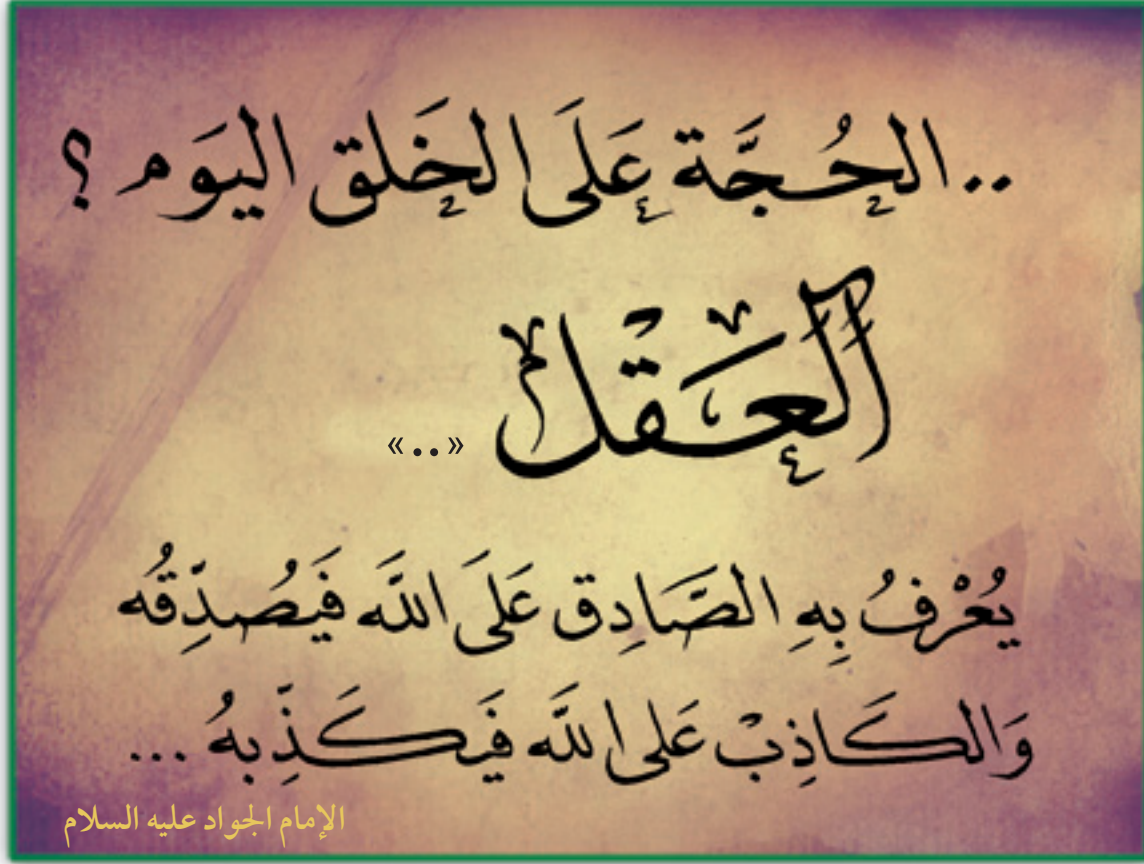 ..الحُجَّة عَلَى الخَلق اليَوم ؟
العَقل
«..»
يُعْرفُ بِهِ الصَّادِق عَلَى اللَّه فَيُصَدِّقُه
وَالكَاذِبْ عَلى اللَّه فَيكَذِّبهُ ...
الإمام الجواد عليه السلام